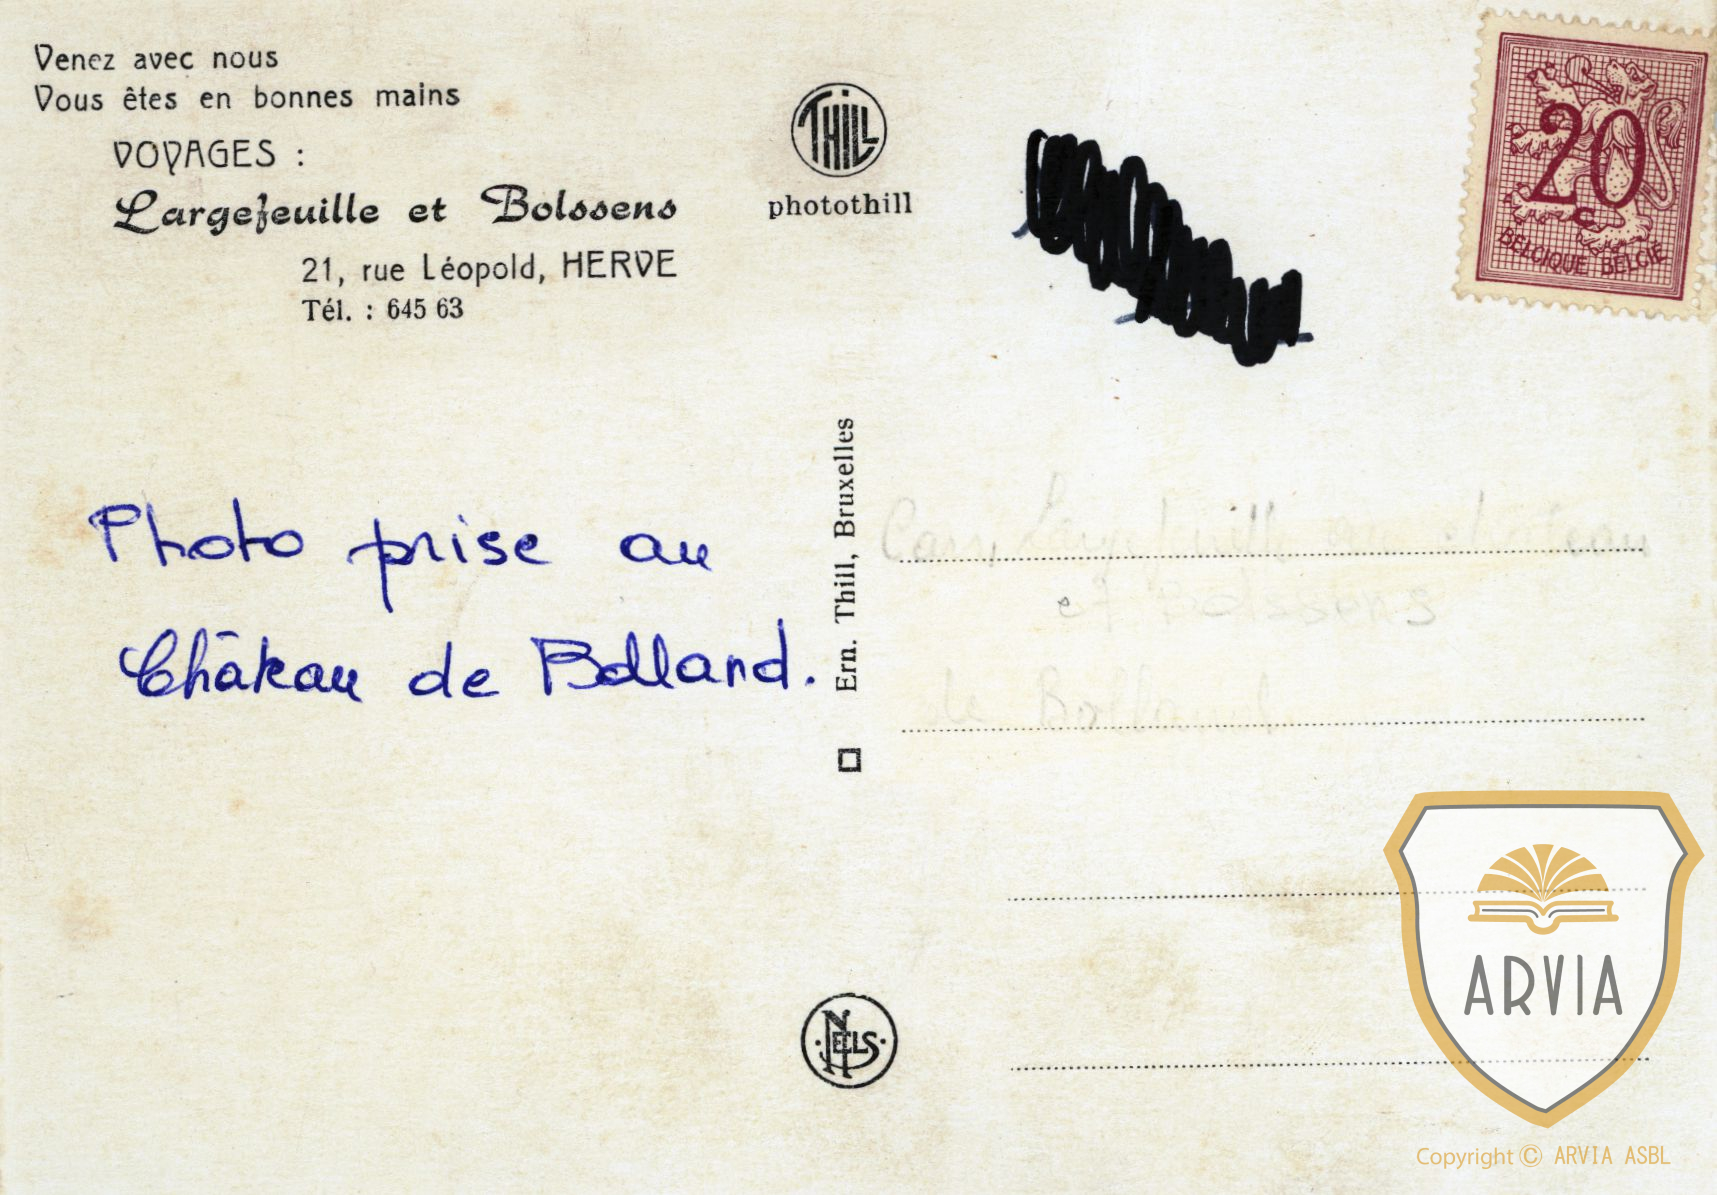 Venez avec nous
Vous êtes en bonnes mains
VOYAGES :
Largefeuille et Bolssens
21, rue Léopold, HERVE
Tél. : 645 63
THILL
photothill
20
c
BELGIQUE BELGIË
Photo prise au
Château de Bolland.
Ern. Thill, Bruxelles
Cars Largefeuille au château
et
de Bolland
NELS
ARVIA
Copyright © ARVIA ASBL